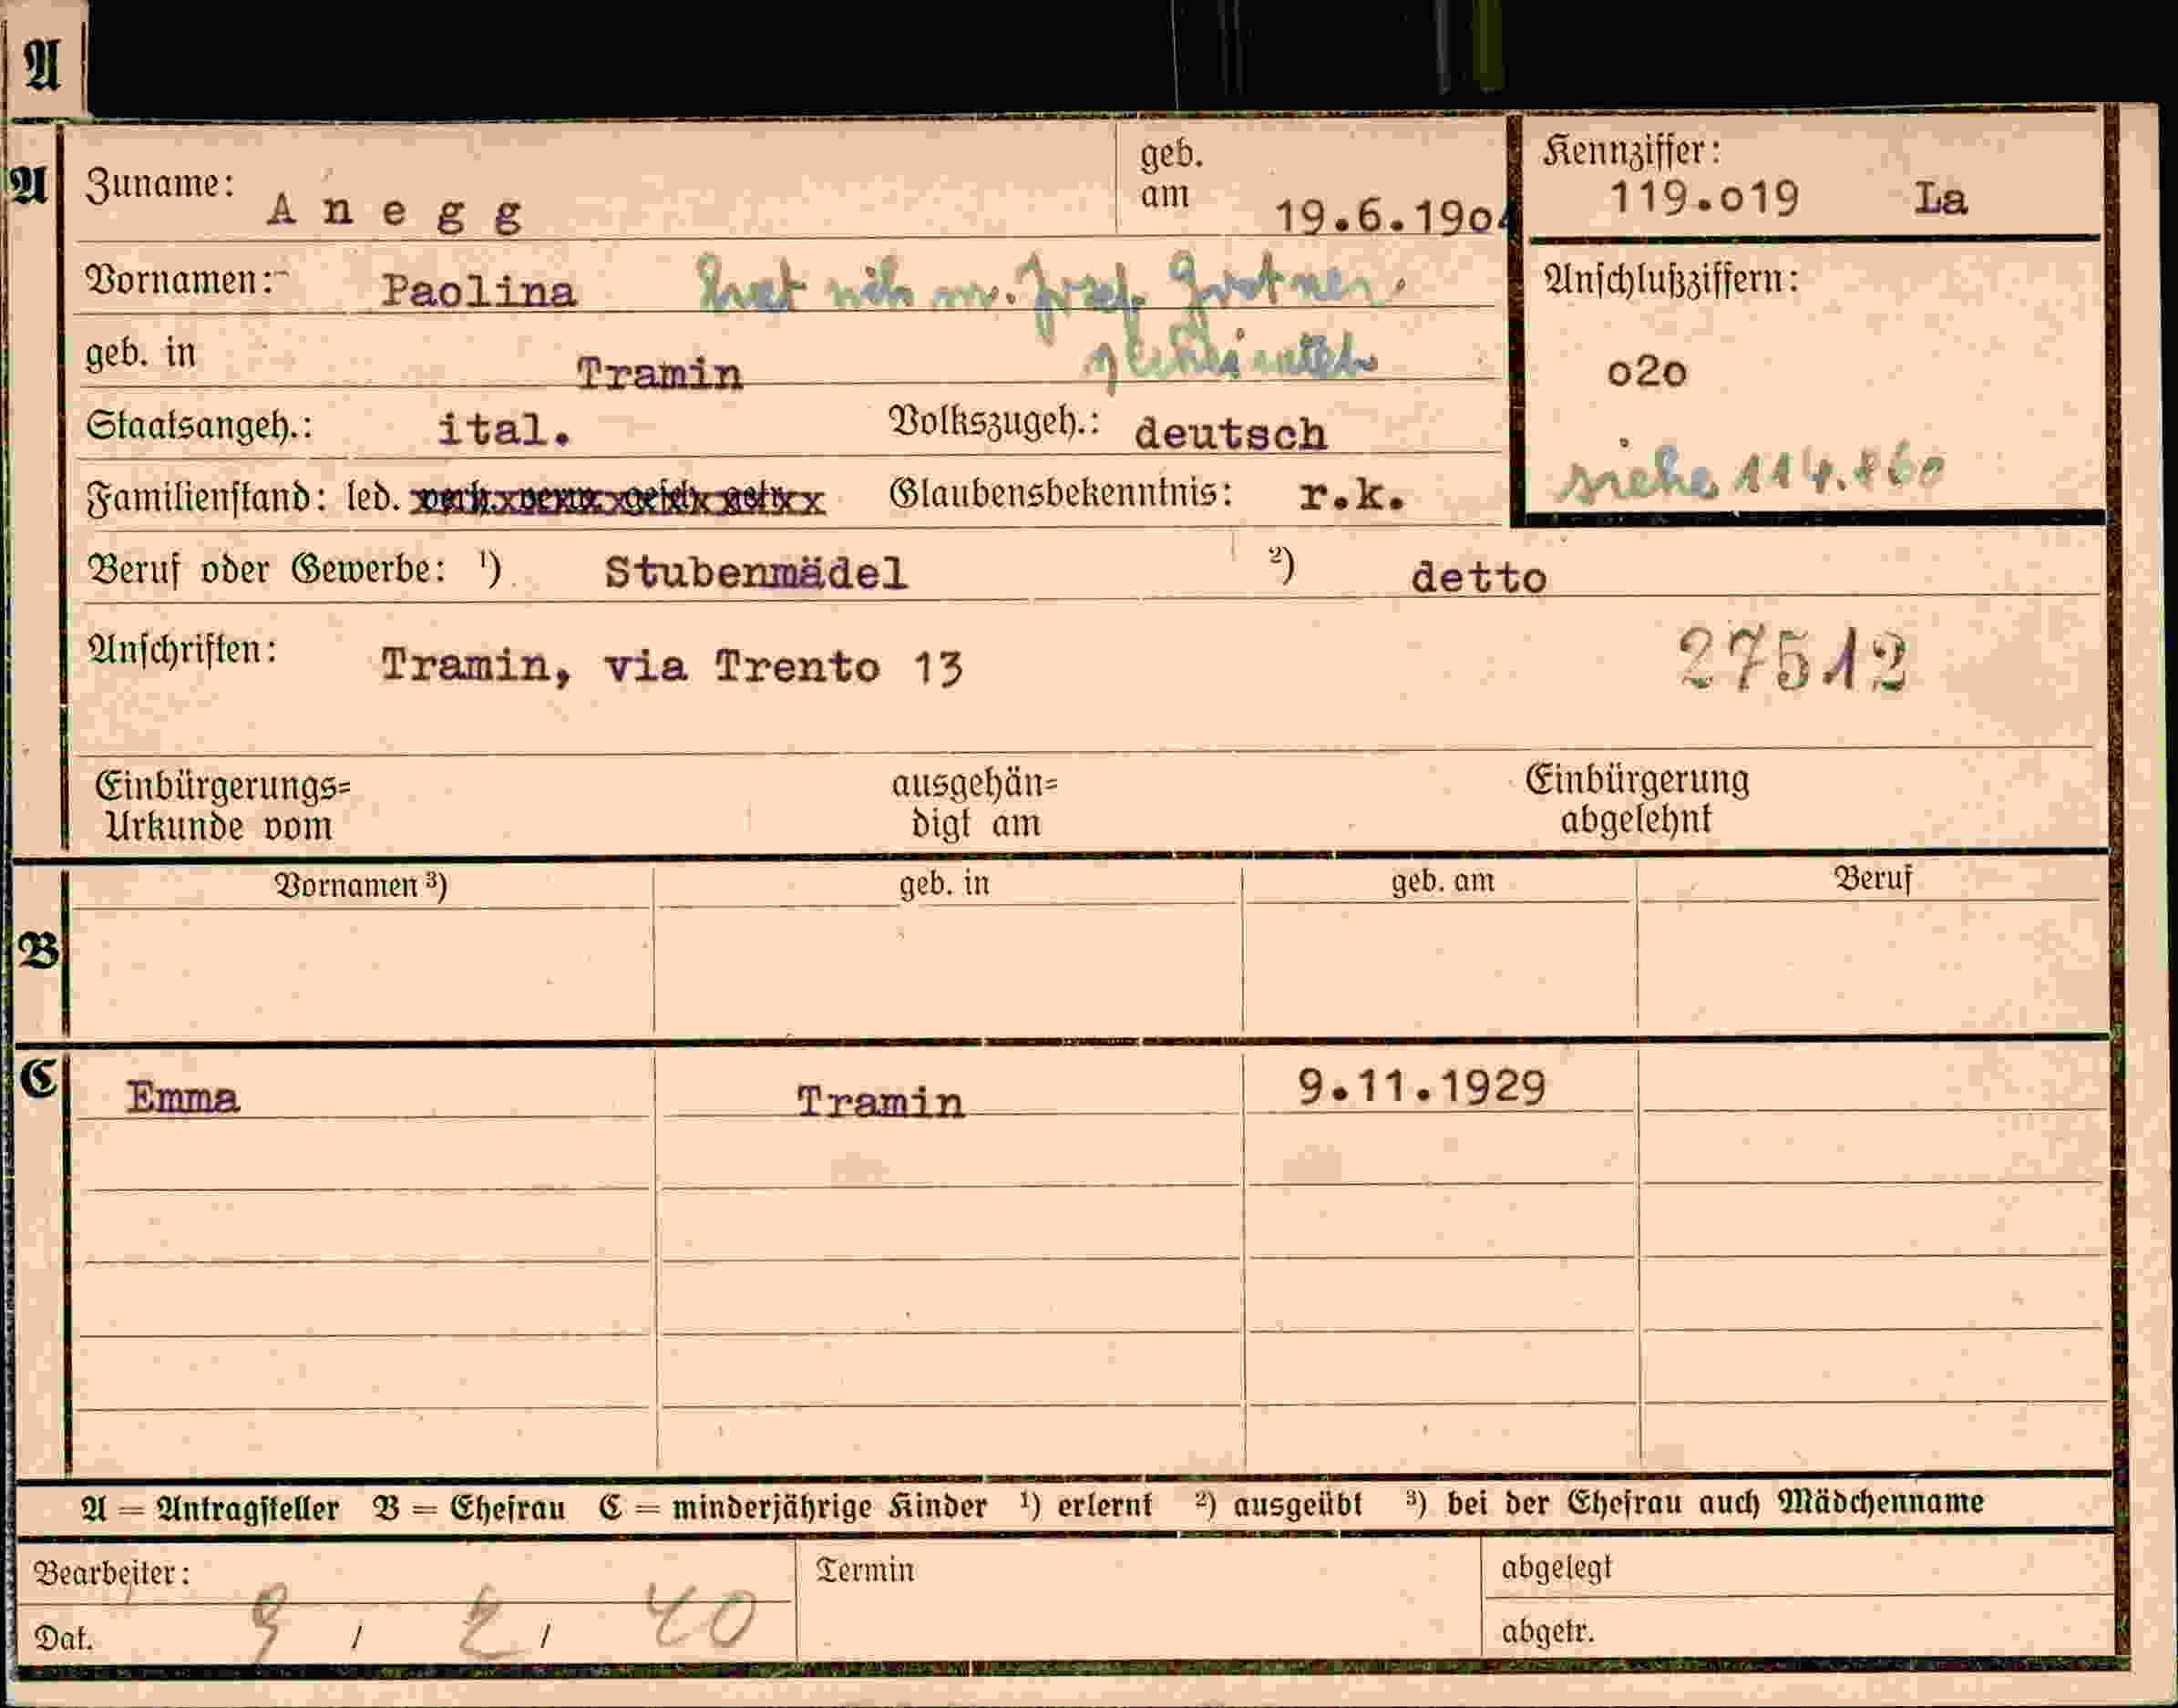 A
A
Zuname: Anegg
geb. am 19.6.1904
Kennziffer:
119.o19 La
Vornamen: Paolina hat sich m. Josef
Anschlußziffern:
geb. in Tramin
o2o
Staatsangeh.: ital. Volkszugeh.: deutsch
siehe 114.860
Familienstand: led. verh. verw. gesch. getr. Glaubensbekenntnis: r.k.
Beruf oder Gewerbe: ¹) Stubenmädel ²) detto
Anschriften: Tramin, via Trento 13
27512
Einbürgerungs=
Urkunde vom
ausgehän=
digt am
Einbürgerung
abgelehnt
Vornamen ³) geb. in geb. am Beruf
B
C Emma Tramin 9.11.1929
A = Antragsteller B = Ehefrau C = minderjährige Kinder ¹) erlernt ²) ausgeübt ³) bei der Ehefrau auch Mädchenname
Bearbeiter: Termin abgelegt
Dat. 9 / 2 / 40 abgetr.